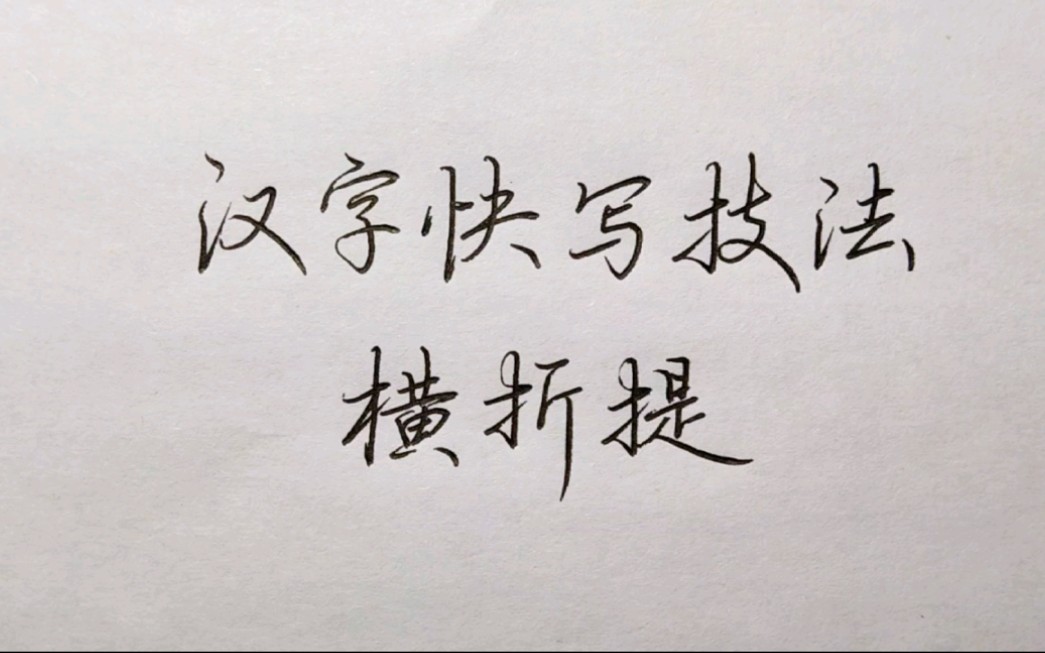 汉字快写技法
横折提